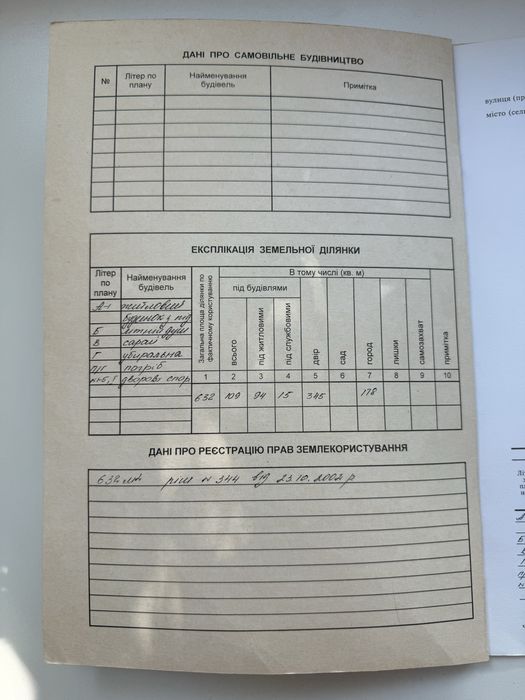 ДАНІ ПРО САМОВІЛЬНЕ БУДІВНИЦТВО
№ Літер по плану Найменування будівель Примітка
ЕКСПЛІКАЦІЯ ЗЕМЕЛЬНОЇ ДІЛЯНКИ
Літер по плану Найменування будівель Загальна площа ділянки по фактичному користуванню В тому числі (кв. м)
під будівлями
всього під житловими під службовими двір сад город лишки самозахват примітка
А-І житловий
будинок з під
Б літній душ
В сарай
Г убиральна
п/г погріб
№1-5, І дворові спор 1 2 3 4 5 6 7 8 9 10
632 109 94 15 345 178
ДАНІ ПРО РЕЄСТРАЦІЮ ПРАВ ЗЕМЛЕКОРИСТУВАННЯ
632 м² ріш N 344 від 23.10.2002 р
вулиця (пр
місто (сел